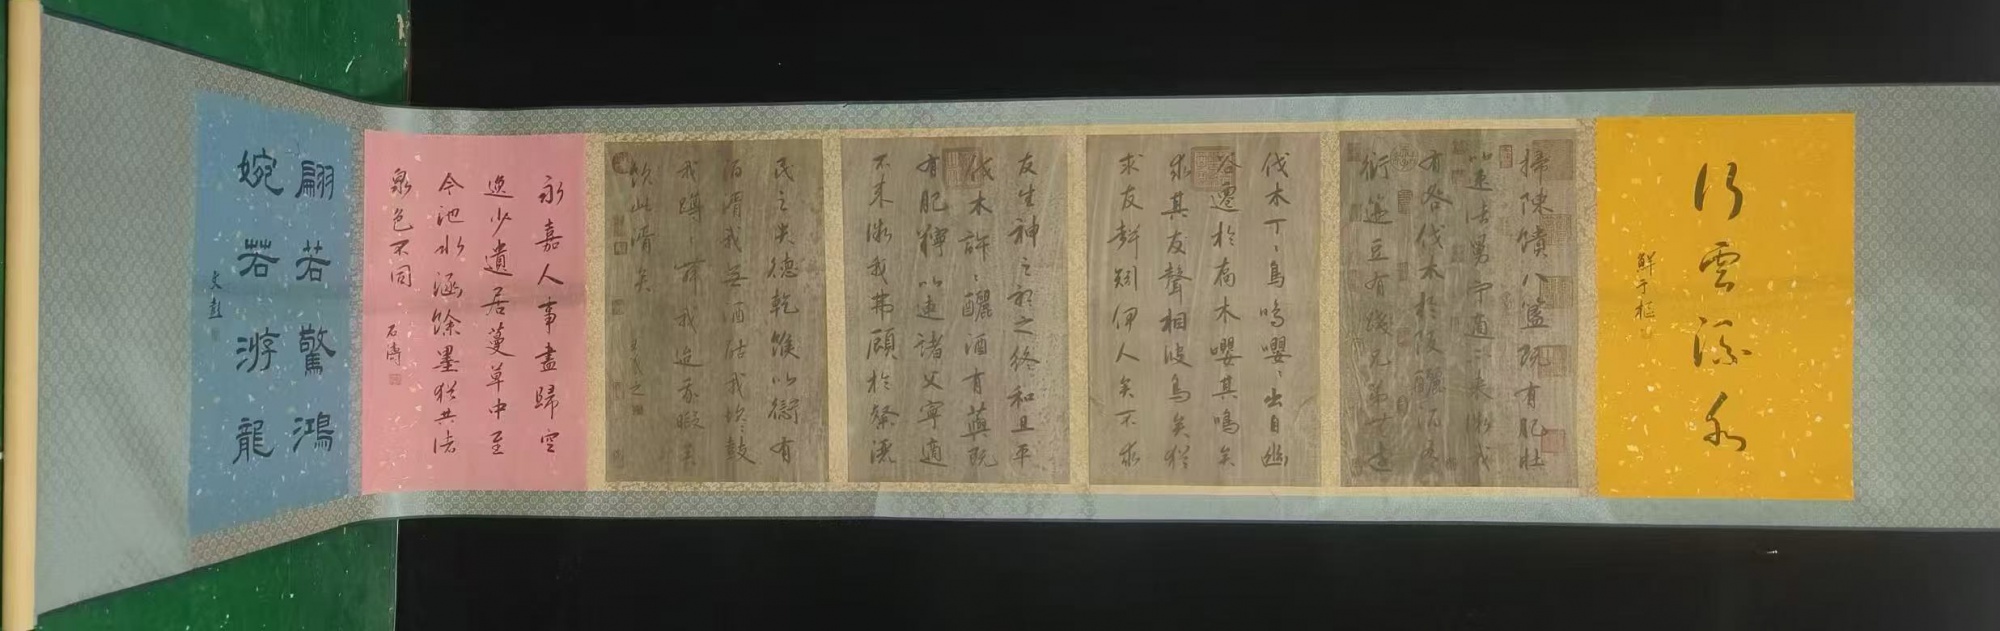 行雲流水
鮮于樞
掃陳饋八簋既有肥牡
以速諸舅寧適不來微我
有咎伐木於阪釃酒有
衍籩豆有踐兄弟無遠
伐木丁丶鳥鳴嚶丶出自幽
谷遷於喬木嚶其鳴矣
求其友聲相彼鳥矣猶
求友聲矧伊人矣不求
友生神之聽之終和且平
伐木許丶釃酒有藇既
有肥羜以速諸父寧適
不來微我弗顧於粲洒
民之失德乾餱以愆有
酒湑我無酒酤我坎丶鼓
我蹲丶舞我迨我暇矣
飲此湑矣
王羲之
永嘉人事盡歸空
逸少遺居蔓草中至
今池水涵餘墨猶共諸
泉色不同
石濤
翩若驚鴻
婉若游龍
文彭